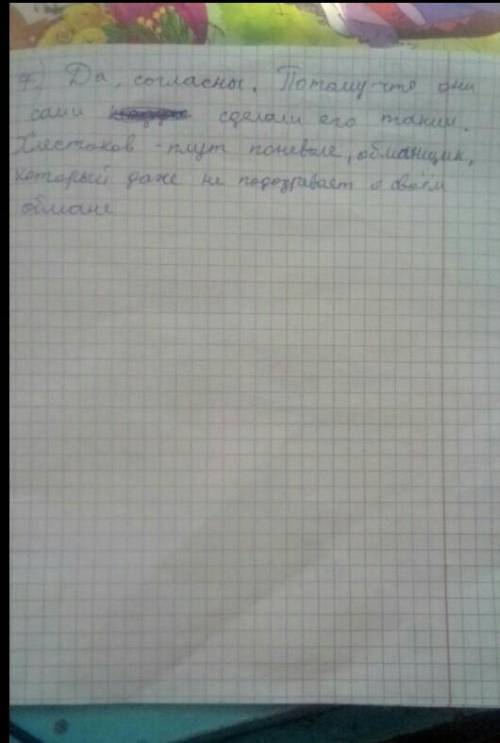 7.) Да, согласны. Потому-что они
сами сделали его таким.
Хлестаков - плут поневоле, обманщик,
который даже не подозревает о своём
обмане